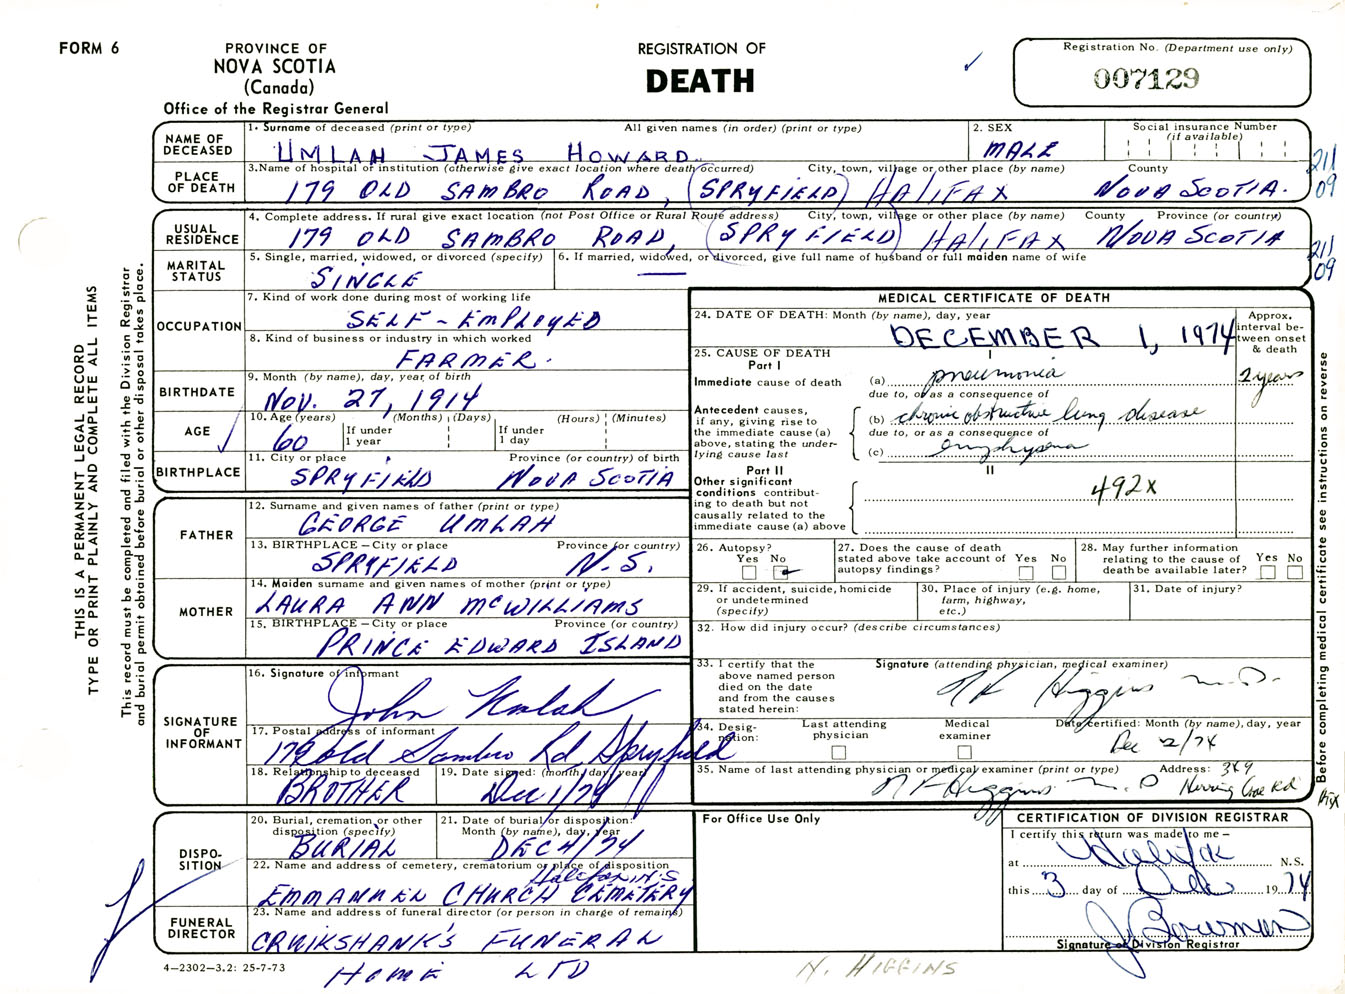 FORM 6
PROVINCE OF
NOVA SCOTIA
(Canada)
Office of the Registrar General
REGISTRATION OF
DEATH
Registration No. (Department use only)
007129
THIS IS A PERMANENT LEGAL RECORD
TYPE OR PRINT PLAINLY AND COMPLETE ALL ITEMS
This record must be completed and filed with the Division Registrar
and burial permit obtained before burial or other disposal takes place.
NAME OF
DECEASED
1. Surname of deceased (print or type) All given names (in order) (print or type)
UMLAH JAMES HOWARD
2. SEX
MALE
Social insurance Number
(if available)
PLACE
OF DEATH
3. Name of hospital or institution (otherwise give exact location where death occurred) City, town, village or other place (by name) County
179 OLD SAMBRO ROAD, (SPRYFIELD) HALIFAX NOVA SCOTIA.
211
09
USUAL
RESIDENCE
4. Complete address. If rural give exact location (not Post Office or Rural Route address) City, town, village or other place (by name) County Province (or country)
179 OLD SAMBRO ROAD, (SPRYFIELD) HALIFAX NOVA SCOTIA
211
09
MARITAL
STATUS
5. Single, married, widowed, or divorced (specify)
SINGLE
6. If married, widowed, or divorced, give full name of husband or full maiden name of wife
OCCUPATION
7. Kind of work done during most of working life
SELF-EMPLOYED
8. Kind of business or industry in which worked
FARMER.
BIRTHDATE
9. Month (by name), day, year of birth
NOV. 27, 1914
AGE
10. Age (years) (Months) (Days) (Hours) (Minutes)
60
If under
1 year
If under
1 day
BIRTHPLACE
11. City or place Province (or country) of birth
SPRYFIELD NOVA SCOTIA
FATHER
12. Surname and given names of father (print or type)
GEORGE UMLAH
13. BIRTHPLACE – City or place Province (or country)
SPRYFIELD N.S.
MOTHER
14. Maiden surname and given names of mother (print or type)
LAURA ANN McWILLIAMS
15. BIRTHPLACE – City or place Province (or country)
PRINCE EDWARD ISLAND
SIGNATURE
OF
INFORMANT
16. Signature of informant
John Umlah
17. Postal address of informant
179 old Sambro Rd Spryfield
18. Relationship to deceased
BROTHER
19. Date signed: (month, day, year)
Dec 1/74
DISPO-
SITION
20. Burial, cremation or other
disposition (specify)
BURIAL
21. Date of burial or disposition:
Month (by name), day, year
DEC 4/74
22. Name and address of cemetery, crematorium or place of disposition
Halifax N.S
EMMANUEL CHURCH CEMETERY
FUNERAL
DIRECTOR
23. Name and address of funeral director (or person in charge of remains)
CRUIKSHANK'S FUNERAL
HOME LTD
4–2302–3.2: 25-7-73
MEDICAL CERTIFICATE OF DEATH
24. DATE OF DEATH: Month (by name), day, year
DECEMBER 1, 1974
Approx.
interval be-
tween onset
& death
25. CAUSE OF DEATH
Part I
I
Immediate cause of death
(a) pneumonia
2 years
due to, or as a consequence of
Antecedent causes,
if any, giving rise to
the immediate cause (a)
above, stating the under-
lying cause last
(b) chronic obstructive lung disease
due to, or as a consequence of
(c) emphysema
Part II
II
Other significant
conditions contribut-
ing to death but not
causally related to the
immediate cause (a) above
492x
26. Autopsy?
Yes No
27. Does the cause of death
stated above take account of
autopsy findings?
Yes No
28. May further information
relating to the cause of
death be available later?
Yes No
29. If accident, suicide, homicide
or undetermined
(specify)
30. Place of injury (e.g. home,
farm, highway,
etc.)
31. Date of injury?
32. How did injury occur? (describe circumstances)
33. I certify that the
above named person
died on the date
and from the causes
stated herein:
Signature (attending physician, medical examiner)
Higgins M.D.
34. Desig-
nation:
Last attending
physician
Medical
examiner
Date certified: Month (by name), day, year
Dec 2/74
35. Name of last attending physician or medical examiner (print or type) Address:
Higgins M.D
349
Herring Cove Rd
Hfx
Before completing medical certificate see instructions on reverse
For Office Use Only
CERTIFICATION OF DIVISION REGISTRAR
I certify this return was made to me –
at Halifax N.S.
this 3 day of Dec 1974
J. Bowman
Signature of Division Registrar
N. HIGGINS